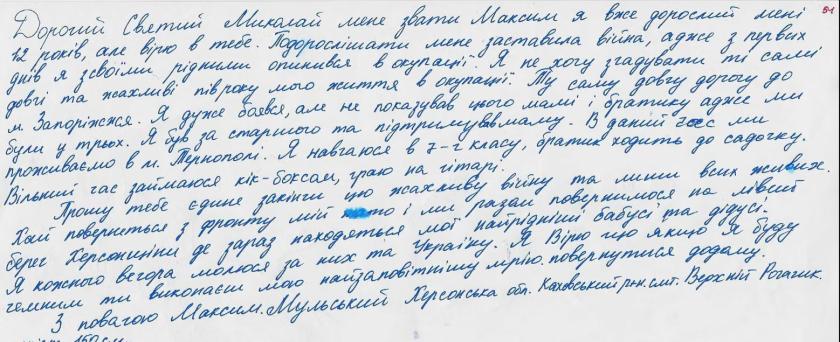 51
Дорогий Святий Миколай мене звати Максим я вже дорослий мені
12 років, але вірю в тебе. Подорослішати мене заставила війна, адже з первих
днів я зсвоїми рідними опинився в окупації. Я не хочу згадувати ті самі
довгі та жахливі півроку мого життя в окупації. Ту саму довгу дорогу до
м. Запоріжжя. Я дуже боявся, але не показував цього мамі і братику адже ми
були у трьох. Я був за старшого та підтримував маму. В даний час ми
проживаємо в м. Тернополі. Я навчаюся в 7-г класу, братик ходить до садочку.
Вільний час займаюся кік-боксом, граю на гітарі.
Прошу тебе єдине закінчи цю жахливу війну та лиши всіх живих.
Хай повернеться з фронту мій тато і ми разом повернимося на лівий
берег Херсонщини де зараз находяться мої найрідніші бабусі та дідусі.
Я кожного вечора молюся за них та Україну. Я Вірю що якщо я буду
чемним ти виконаєш мою найзаповітнішу мрію повернутися додому.
З повагою Максим. Мульський Херсонська обл. Каховський р-н. смт. Верхній Рогачик.
150см